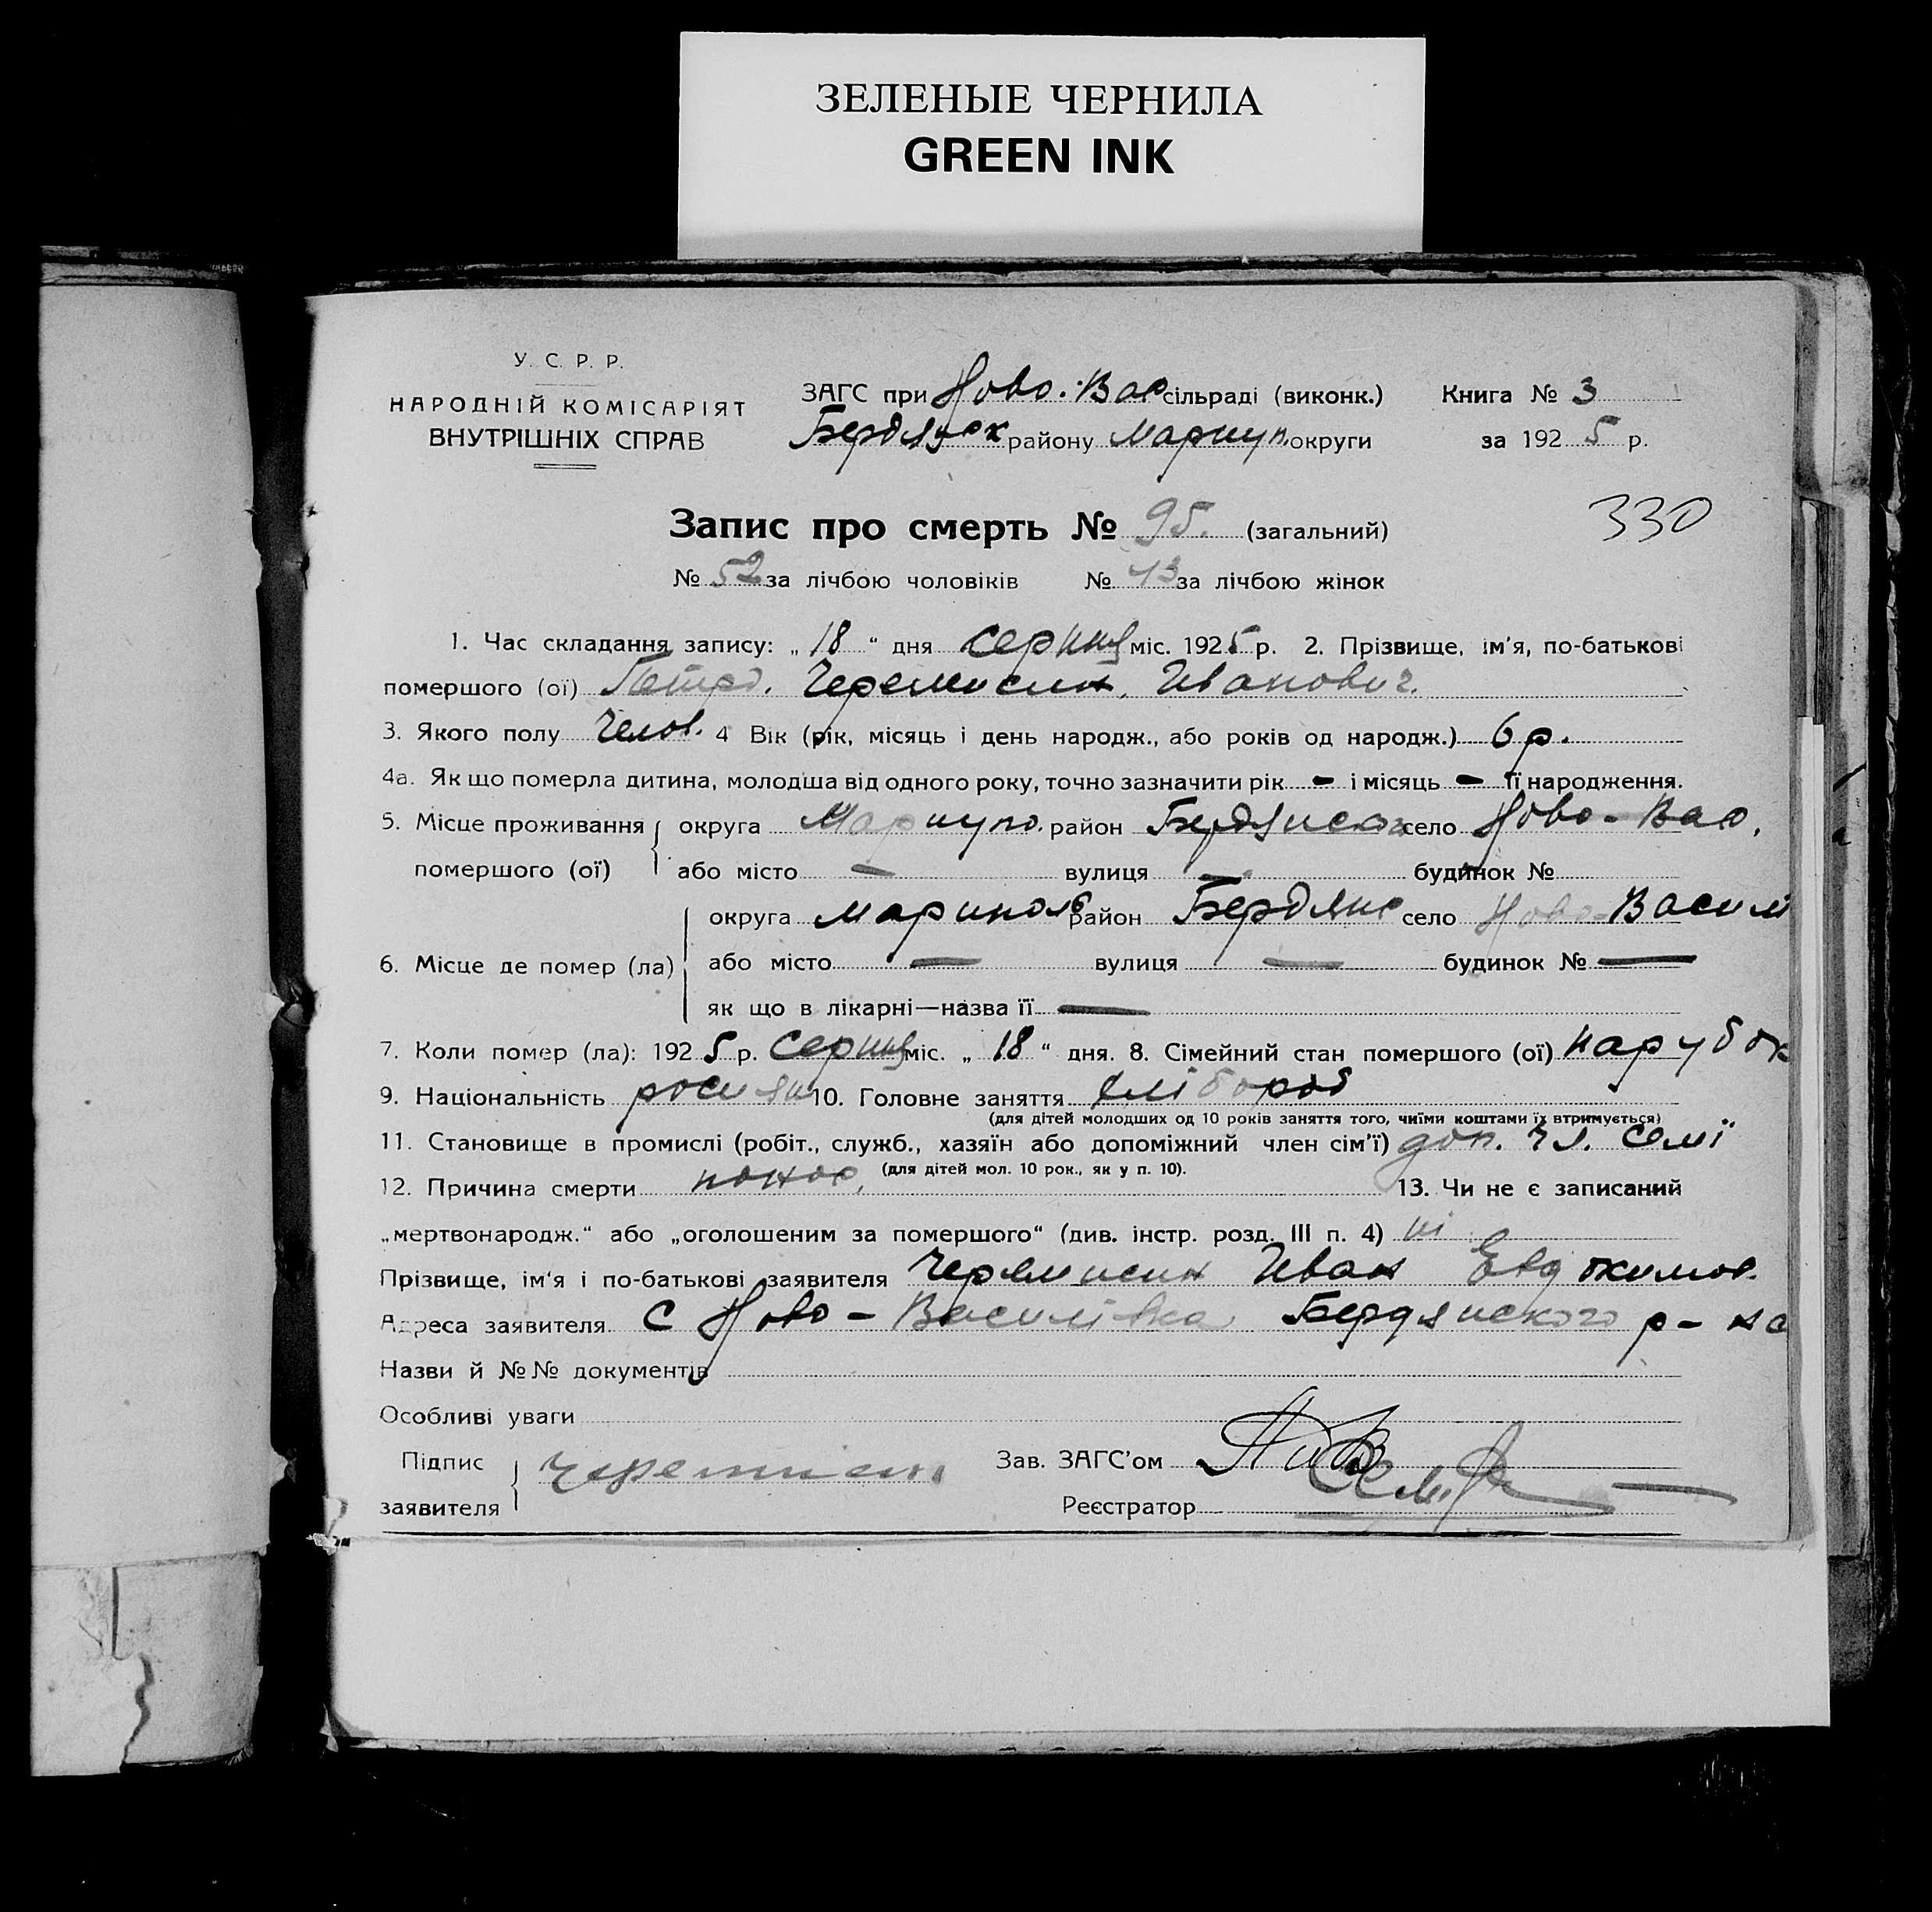 ЗЕЛЕНЫЕ ЧЕРНИЛА
GREEN INK
У. С. Р. Р.
НАРОДНІЙ КОМІСАРІЯТ
ВНУТРІШНІХ СПРАВ
ЗАГС при Ново-Вас сільраді (виконк.)
Бердянск району Мариуп. округи
Книга № 3
за 1925 р.
Запис про смерть № 95. (загальний)
330
№ 52 за лічбою чоловіків № 43 за лічбою жінок
1. Час складання запису: „18“ дня серпня міс. 1925 р. 2. Прізвище, ім'я, по-батькові
помершого (ої) Петро. Черемисин, Иванович.
3. Якого полу Челов. 4 Вік (рік, місяць і день народж., або років од народж.) 6 р.
4а. Як що померла дитина, молодша від одного року, точно зазначити рік - і місяць - її народження.
5. Місце проживання помершого (ої) округа Мариупо. район Бердянск село Ново-Вас,
або місто — вулиця — будинок №
6. Місце де помер (ла) округа Мариполь район Бердянс село Ново-Васили
або місто — вулиця — будинок № —
як що в лікарні—назва її —
7. Коли помер (ла): 1925 р. Серпня міс. „18“ дня. 8. Сімейний стан помершого (ої) парубок
9. Національність росиян 10. Головне заняття хлібороб
(для дітей молодших од 10 років заняття того, чиїми коштами їх втримується)
11. Становище в промислі (робіт., служб., хазяїн або допоміжний член сім'ї) доп. чл. семї
(для дітей мол. 10 рок., як у п. 10).
12. Причина смерти понос, 13. Чи не є записаний
„мертвонародж.“ або „оголошеним за помершого“ (див. інстр. розд. III п. 4) ні
Прізвище, ім'я і по-батькові заявителя Черемисин Иван Евдокимов.
Адреса заявителя С Ново-Василівка Бердянского р-на
Назви й №№ документів
Особливі уваги
Підпис заявителя Черемисин
Зав. ЗАГС'ом
Реєстратор